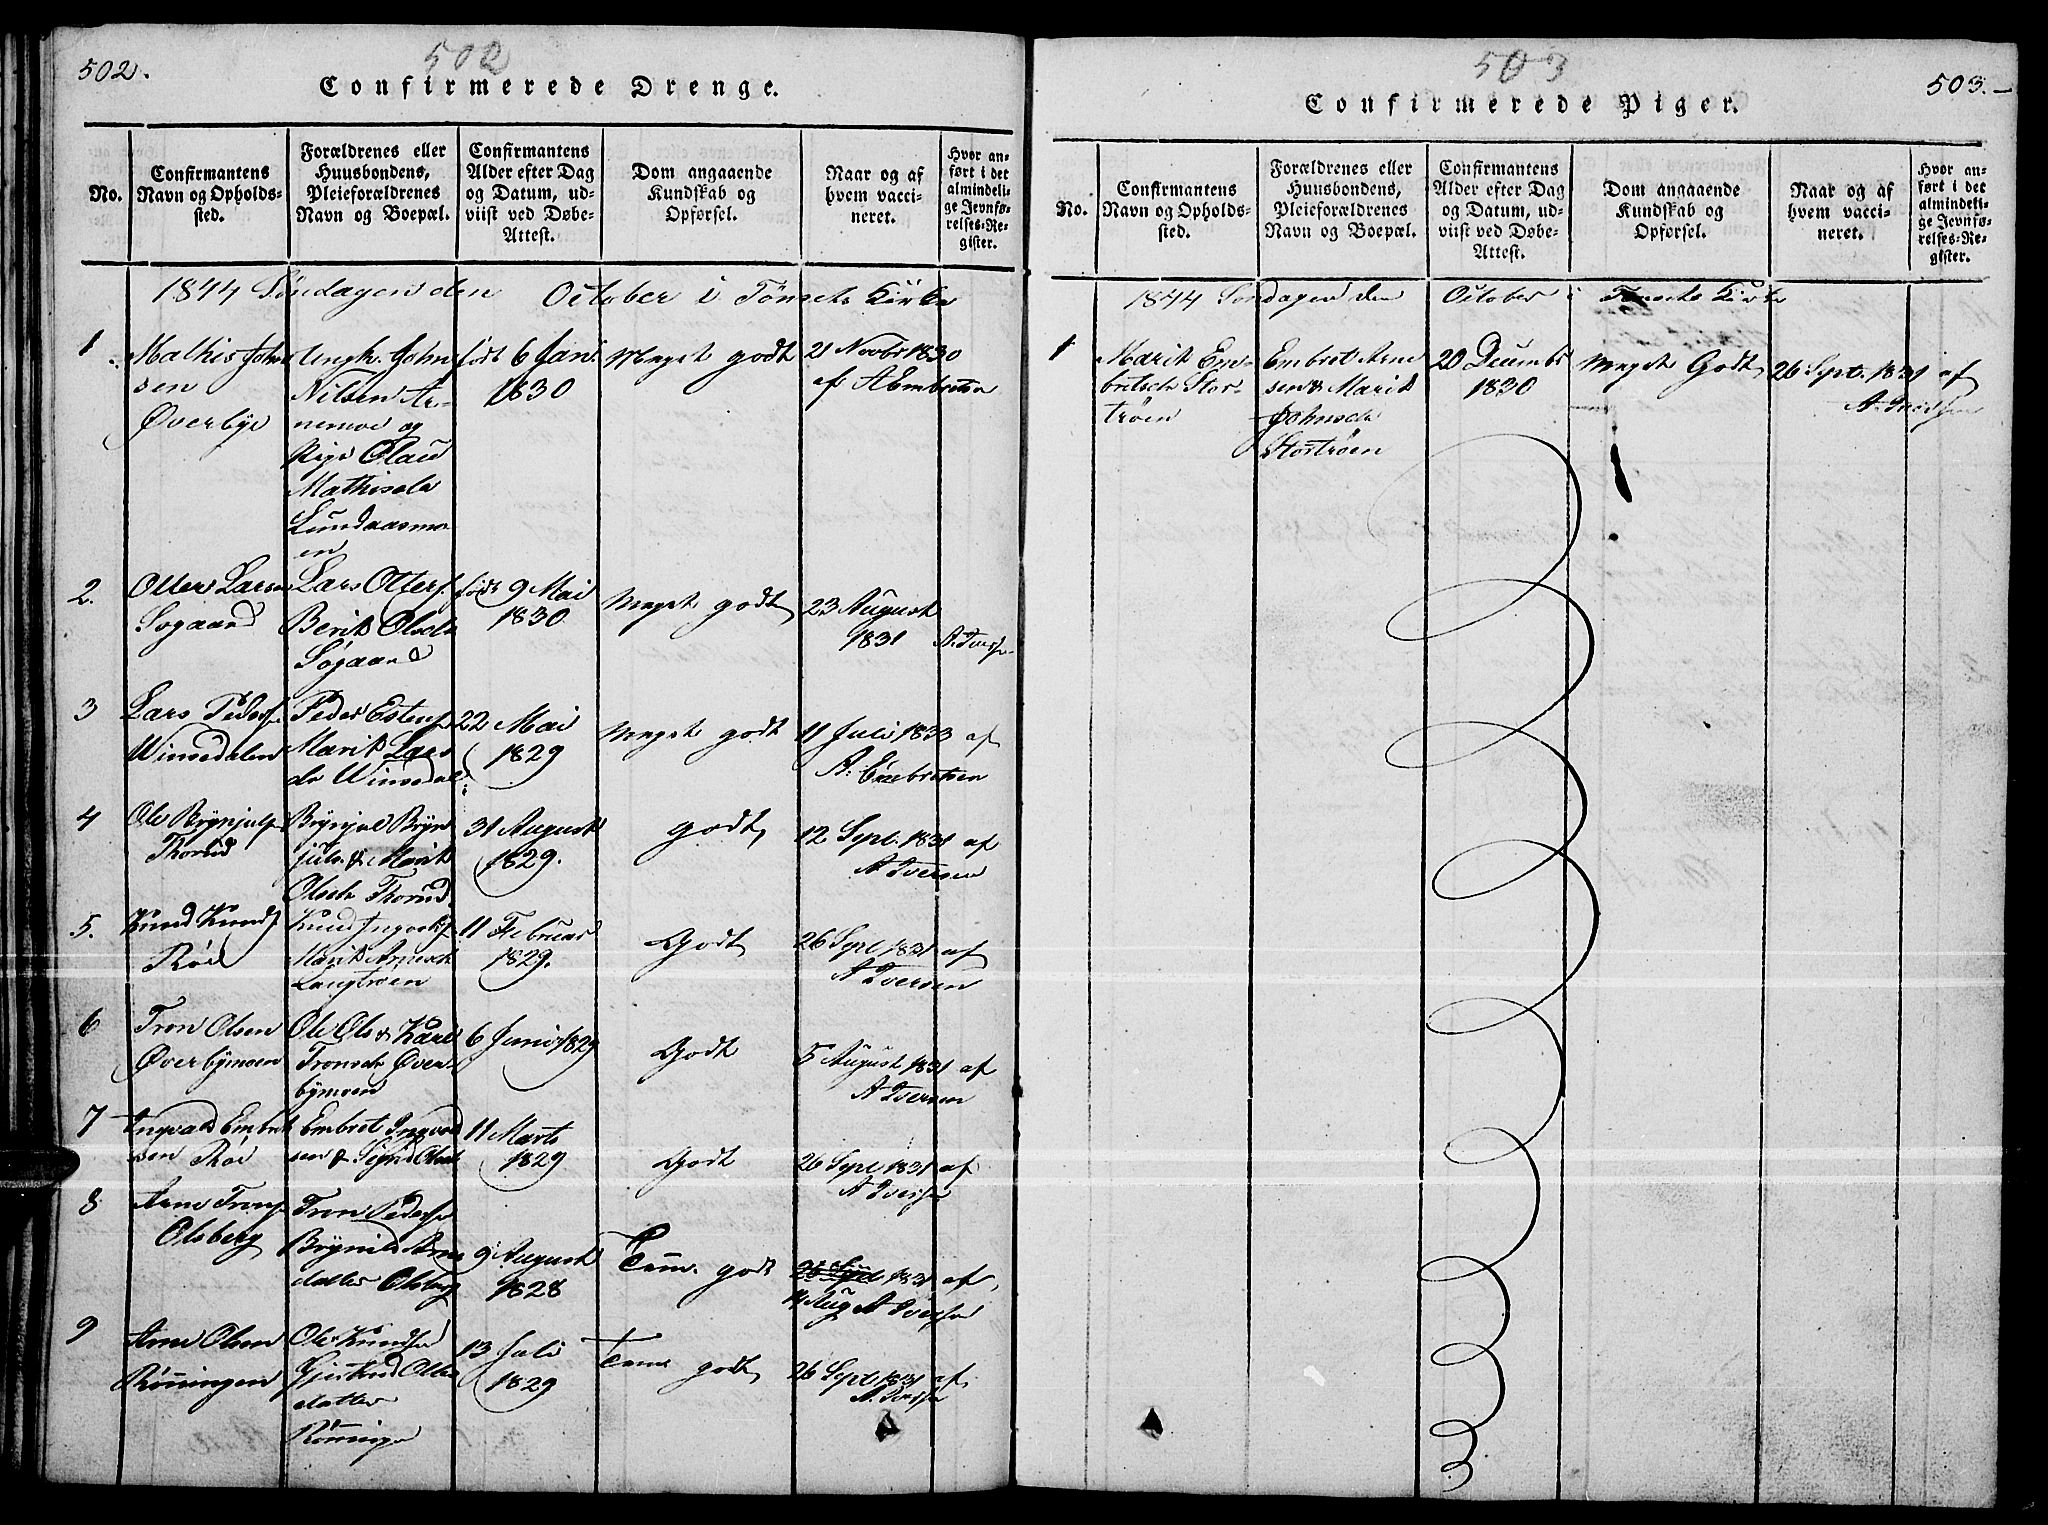 502.
502
Confirmerede Drenge.
No.
Confirmantens
Navn og Opholds-
sted.
Forældrenes eller
Huusbondens,
Pleieforældrenes
Navn og Boepæl.
Confirmantens
Alder efter Dag
og Datum, ud-
viist ved Døbe-
Attest.
Dom angaaende
Kundskab og
Opførsel.
Naar og af
hvem vacci-
neret.
Hvor an-
ført i det
almindeli-
ge Jevnfø-
relses-Re-
gister.
1844 Søndagen den October i Tønsets Kirke
1
Mathis John
sen
Øverbye
Ungk. John
Nilsen Ar-
nemoe og
Pige Olau
Mathisdtr
Lundaasmo-
en
født 6 Jan.
1830
Meget godt
21 Novbr 1830
af A Embretsen
2.
Otter Larsen
Søgaard
Lars Otters.
Berit Olsdtr
Søgaard
født 9 Mai
1830
Meget godt
23 August
1831
A. Iversen
3
Lars Peders.
Winsedalen
Peder Estens.
Marit Lars
dr Winsedal
22 Mai
1829
Meget godt
11 Juli 1833 af
A. Embretsen
4
Ole Brynjuls.
Thorud
Brynjul Bryn
juls. & Marit
Olsdtr Thorud
31 August
1829.
godt
12 Sept. 1831 af
A Iversen
5.
Knud Knuds.
Røe
Knud Ingvalds.
Marit Arnesdtr
Langtrøen
11 Februar
1829.
Godt
26 Sept 1831 af
A Iversen
6
Tron Olsen
Øverbymoen
Ole Ols & Kari
Tronsdtr Øver-
bymoen
6 Juni 1829
Godt
5 August 1831 af
A Iversen
7
Ingvald Embret
sen Røe
Embret Ingvald
sen & Sigrid Olsdtr
11 Marts
1829
Godt
26 Sept 1831 af
A Iversen
8
Arne Trons.
Olsberg
Tron Pedersen
Brynild Arne
datter Olsberg
9 August
1828
Tem. godt
26 Sept 1831 af
14 Aug A Iversen
9
Arne Olsen
Rønningen
Ole Knudsen
Gjertrud Ols
datter
Rønningen
13 Juli
1829
Tem godt
26 Sept 1831 af
A. Iversen
503
503.
Confirmerede Piger.
No.
Confirmantens
Navn og Opholds-
sted.
Forældrenes eller
Huusbondens,
Pleieforældrenes
Navn og Boepæl.
Confirmantens
Alder efter Dag
og Datum, ud-
viist ved Døbe-
Attest.
Dom angaaende
Kundskab og
Opførsel.
Naar og af
hvem vacci-
neret.
Hvor an-
ført i det
almindeli-
ge Jevnfø-
relses-Re-
gister.
1844 Søndagen den October i Tønsets Kirke
1
Marit Em-
bretsdr Stor-
trøen
Embret Arne
sen & Marit
Johnsdr
Stortrøen
20 Decembr
1830
Meget Godt
26 Sept. 1831 af
A. Iversen